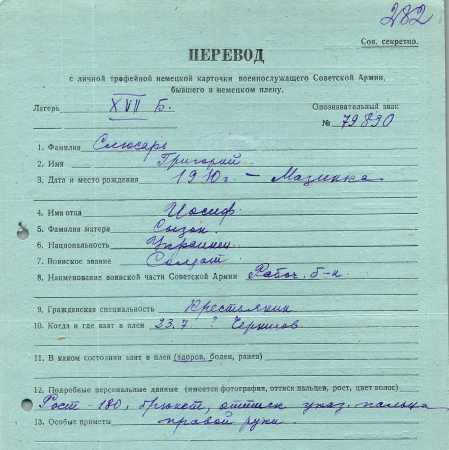 282
Сов. секретно.
ПЕРЕВОД
с личной трофейной немецкой карточки военнослужащего Советской Армии,
бывшего в немецком плену.
Лагерь XVII Б. Опознавательный знак
№ 79890
1. Фамилия Слюсарь
2. Имя Григорий
3. Дата и место рождения 1910г – Мазинка
4. Имя отца Иосиф
5. Фамилия матери Сызон
6. Национальность Украинец
7. Воинское звание Солдат
8. Наименование воинской части Советской Армии Рабоч. б-н
9. Гражданская специальность Крестьянин
10. Когда и где взят в плен 23.7 ? Чернигов
11. В каком состоянии взят в плен (здоров, болен, ранен)
12. Подробные персональные данные (имеется фотография, оттиск пальцев, рост, цвет волос)
Рост – 180, брюнет, оттиск указ. пальца
13. Особые приметы правой руки